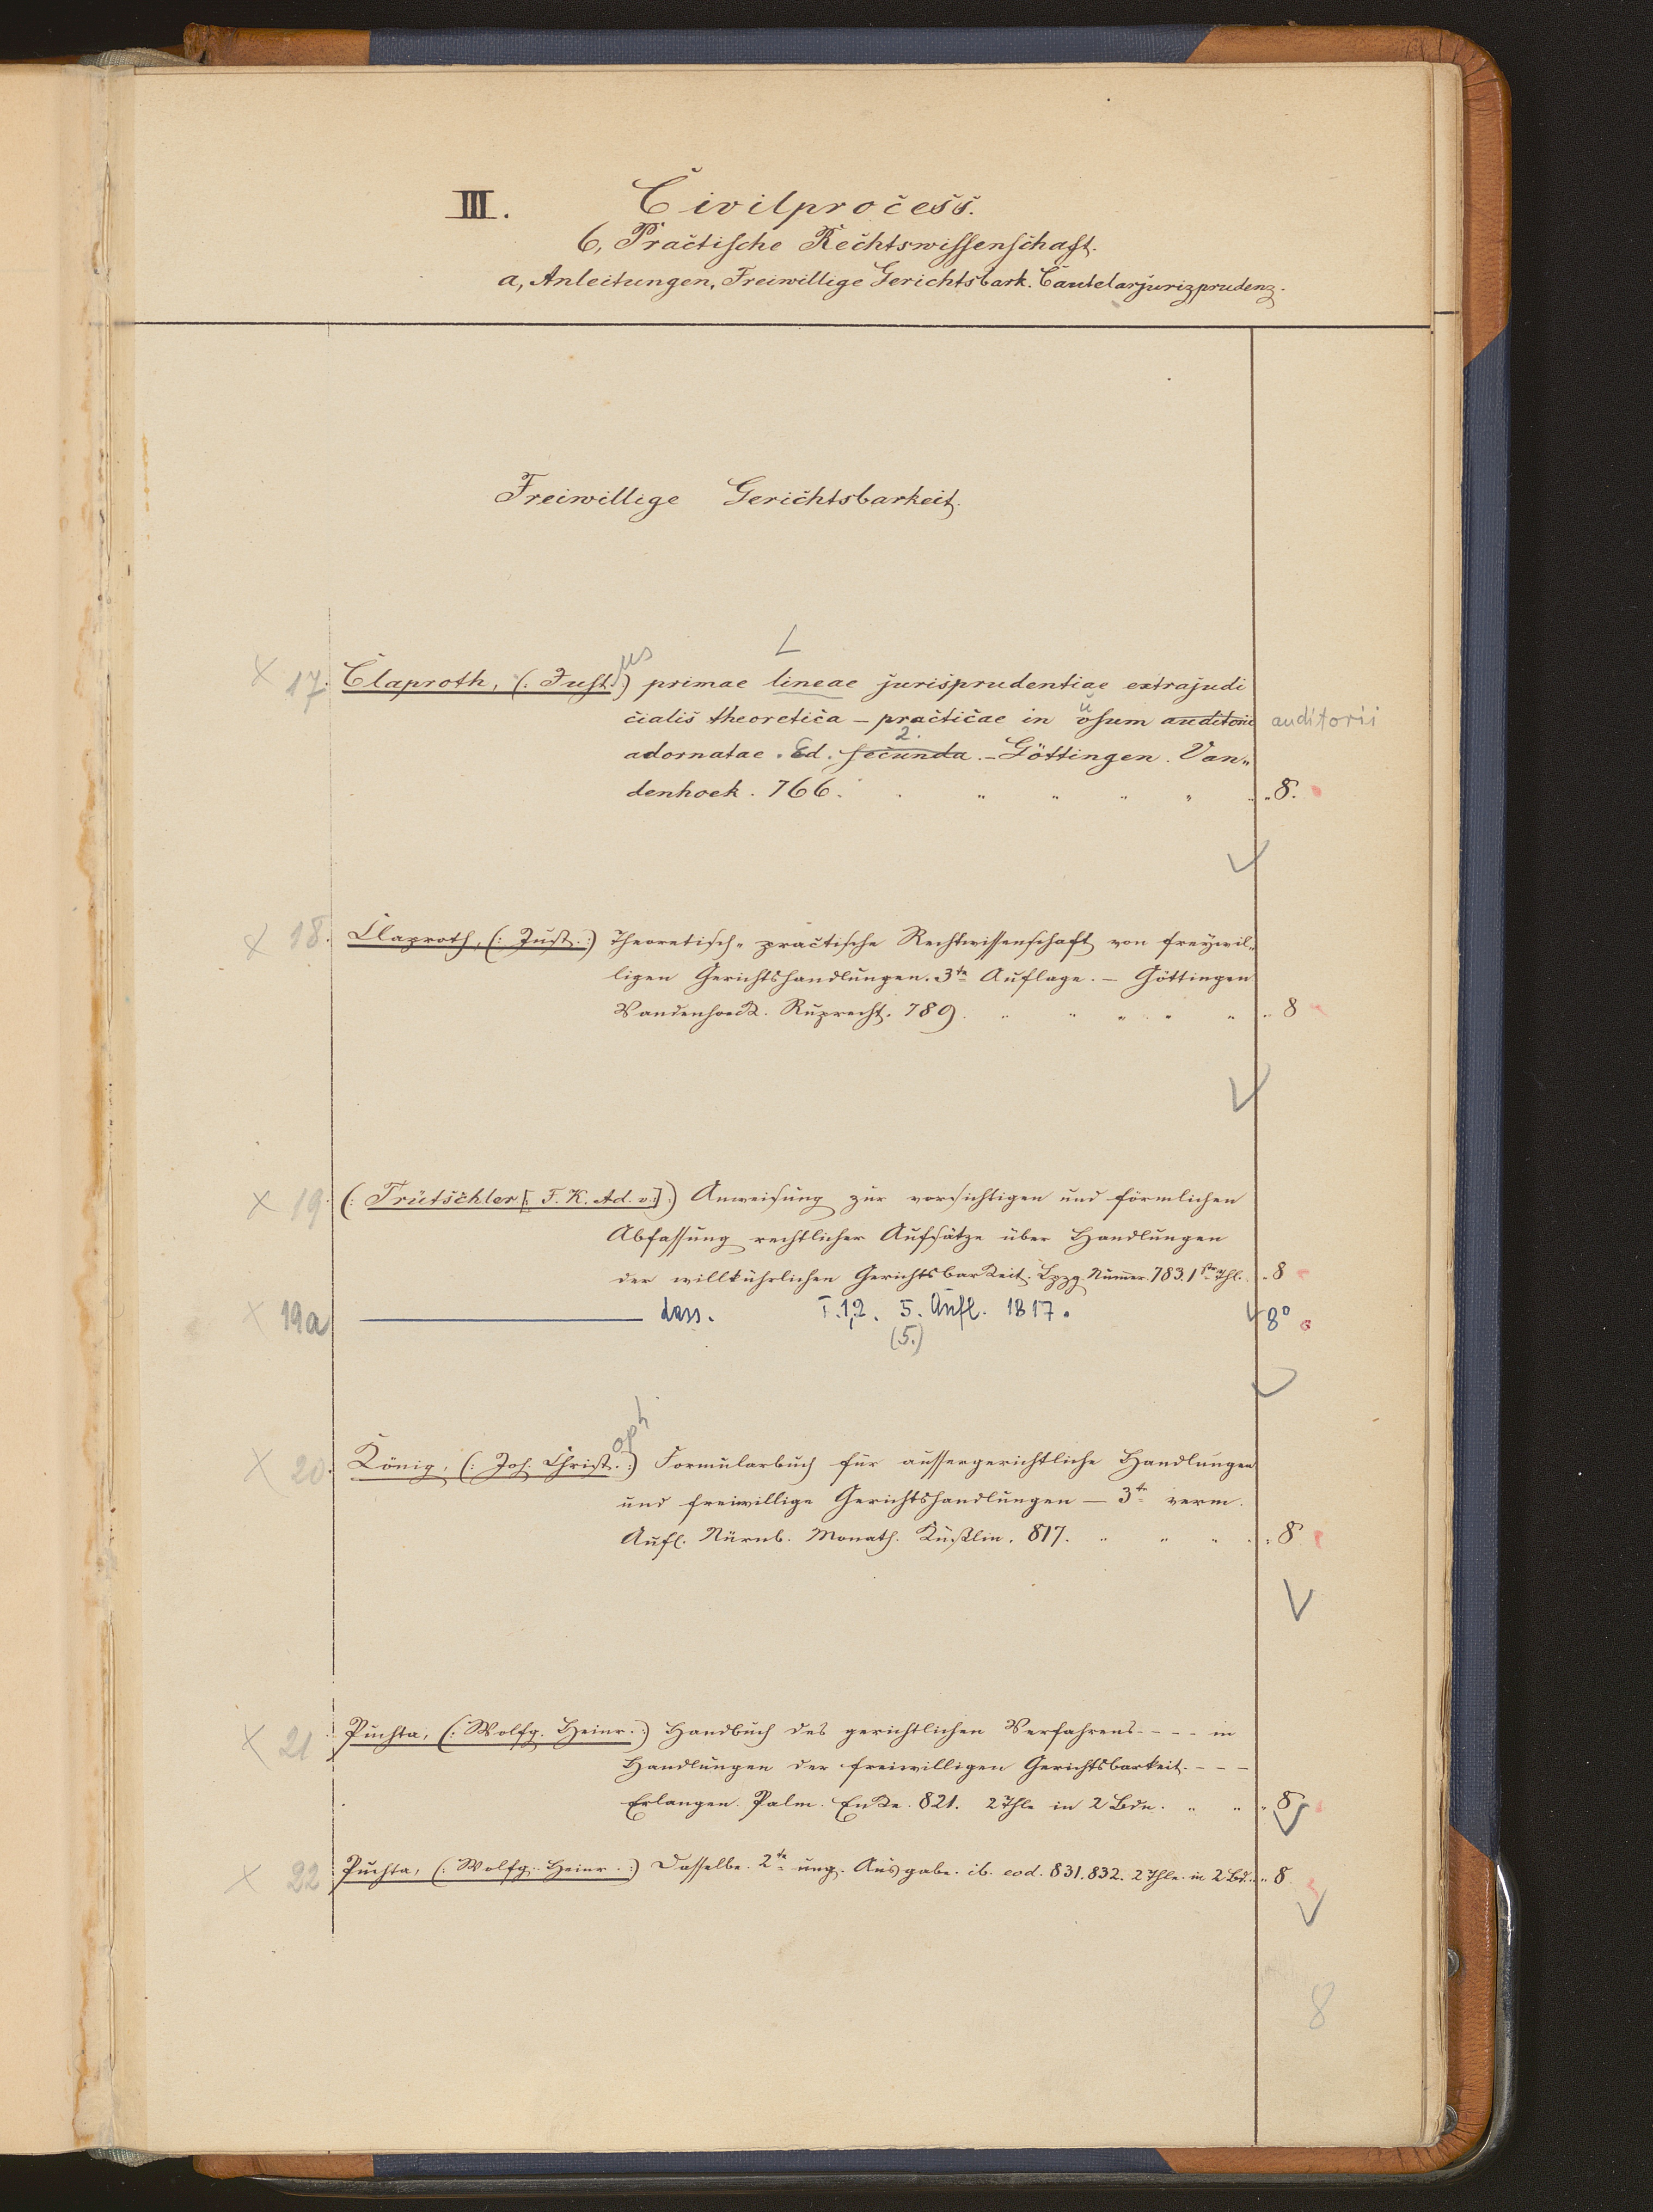 III. Civilprocess.
6, Practische Rechtswissenschaft.
a, Anleitungen, Freiwillige Gerichtsbark. Cautelarjurizprudenz.
Freiwillige Gerichtsbarkeit.
L
us
x 17. Claproth, (: Just.:) primae lineae jurisprudentiae extrajudi
cialis theoretica – practicae in osum auditorii auditorii
u
2.
adornatae. Ed. secunda. – Göttingen. Van„
denhoek. 766. „ 8.
x 18. Claproth, (: Just.:) Theoretisch-practische Rechtwissenschaft von freywil-
ligen Gerichtshandlungen. 3te Auflage. – Göttingen
Vandenhoeck. Ruprecht. 789. „ 8
x 19. (: Trütschler [: F. K. Ad. v:] :) Anweisung zur vorsichtigen und förmlichen
Abfassung rechtlicher Aufsätze über Handlungen
der willkührlichen Gerichtsbarkeit. Lpzg. Numer. 783. 1ster Thl. „ 8
x 19a ——— dass. T. 1,2. 5. Aufl. 1817. 8°
(5.)
oph
x 20. König, (: Joh. Christ.:) Formularbuch für aussergerichtliche Handlungen
und freiwillige Gerichtshandlungen – 3te verm.
Aufl. Nürnb. Monath. Kußlin. 817. „ 8
x 21. Puchta, (: Wolfg. Heinr.:) Handbuch des gerichtlichen Verfahrens - - - - in
Handlungen der freiwilligen Gerichtsbarkeit. - - -
Erlangen. Palm. Enke. 821. 2 Thle in 2 Bdn. „ 8
x 22 Puchta, (: Wolfg. Heinr.:) Dasselbe. 2te ung. Ausgabe. ib. eod. 831. 832. 2 Thle. in 2 Bd. „ 8
8